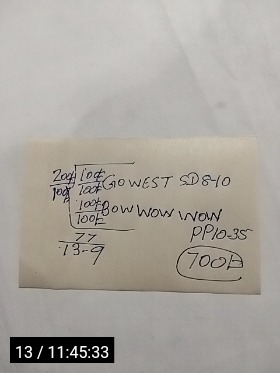 200₵ 100₵ GO WEST SD 8-10
100₵ 100₵
100₵ BOW WOW WOW
100₵
PP10-35
77
13-9
700₵
13 / 11:45:33